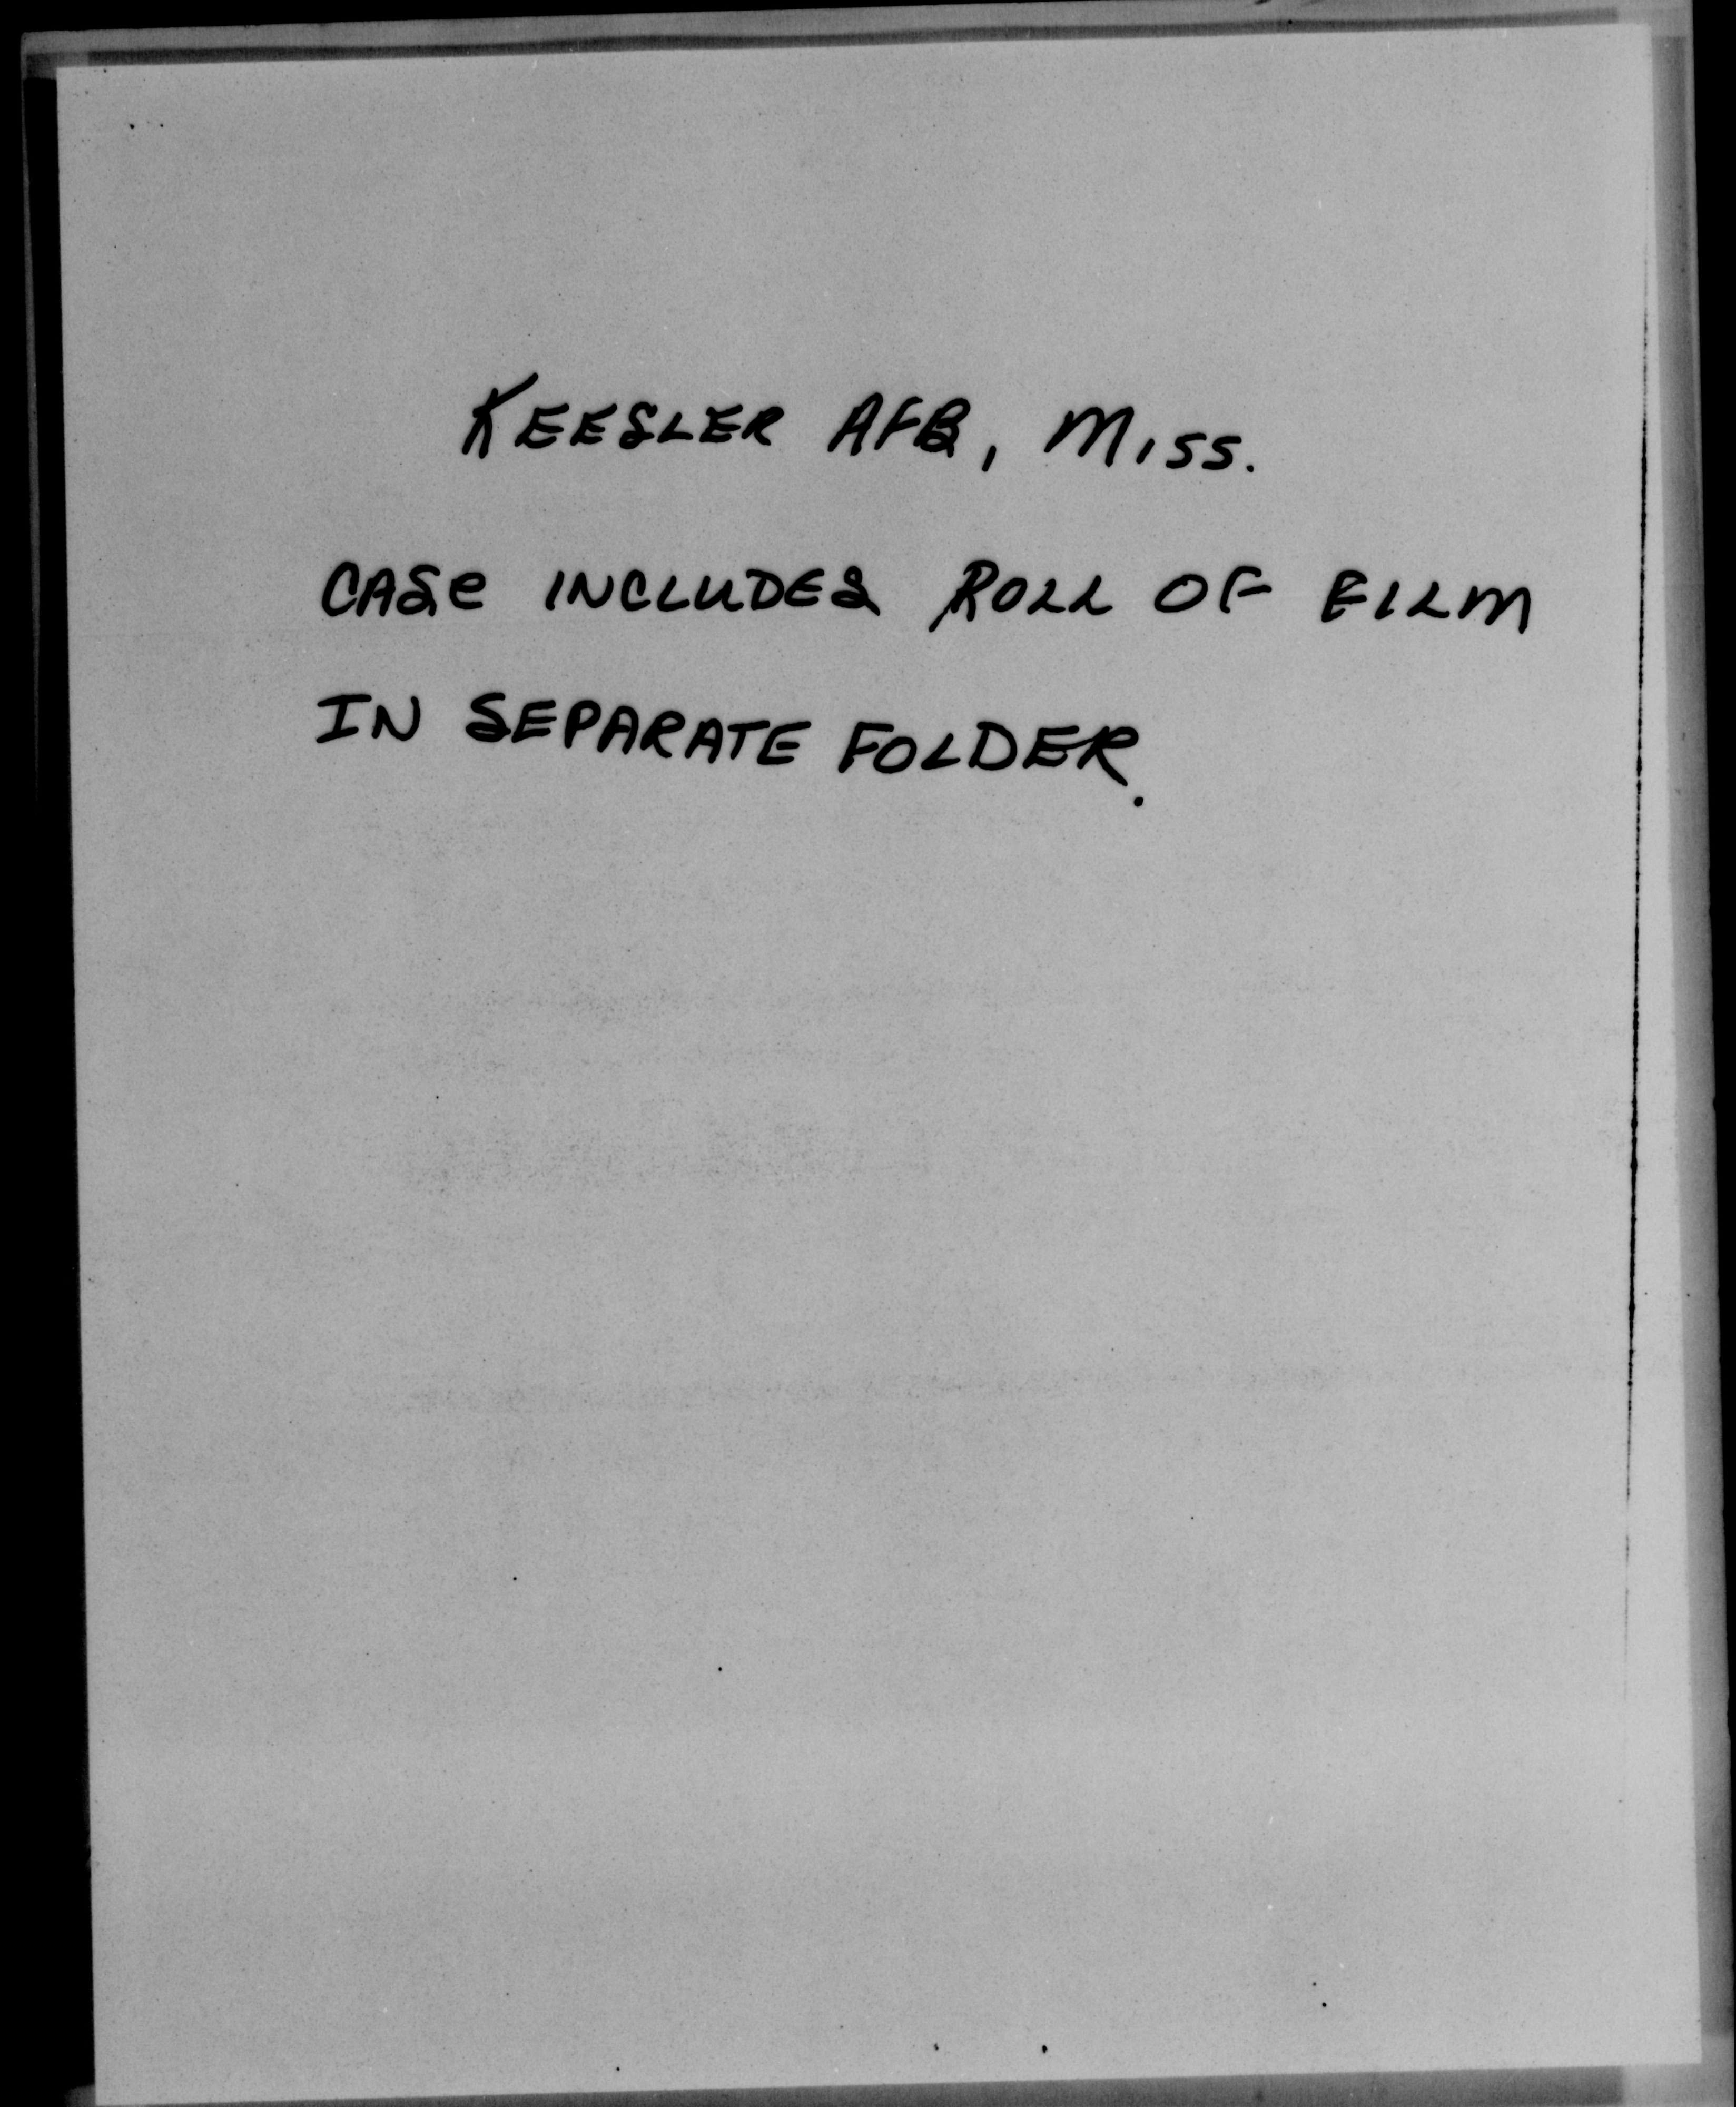 KEESLER AFB, MISS.
CASE INCLUDES ROLL OF FILM
IN SEPARATE FOLDER.